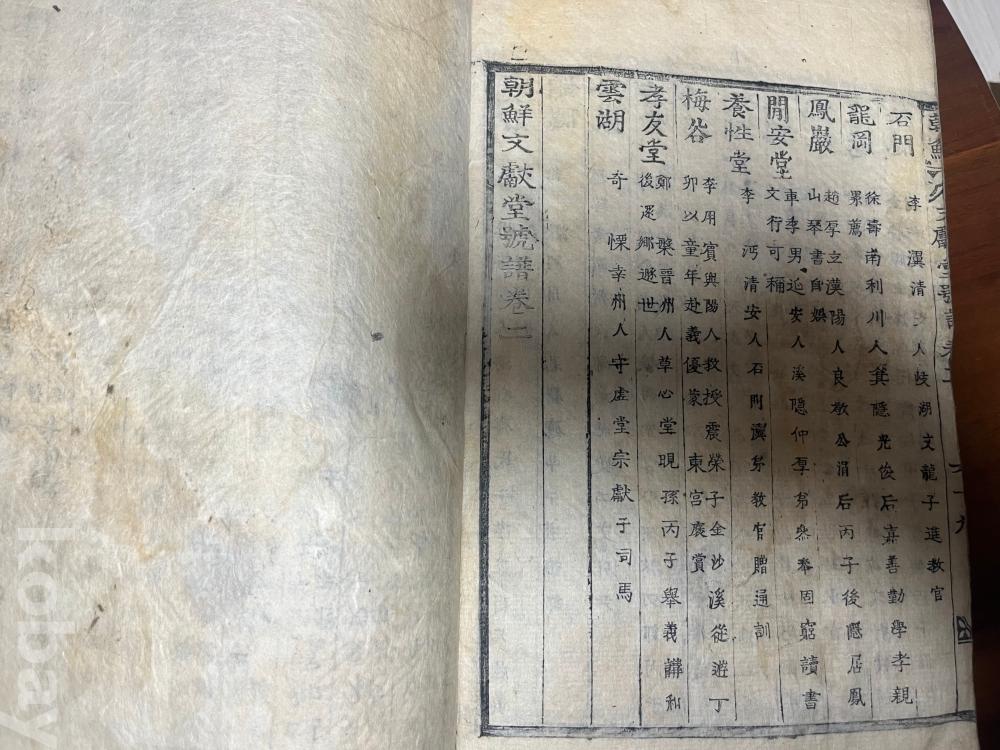 朝鮮文獻堂號譜卷二
石門
李 潩清人岐湖文龍子進教官
龍岡
徐壽南利川人箕隱光俊后嘉善勤學孝親
累薦
鳳巖
趙孚立漢陽人良敬公涓后丙子後隱居鳳
山琴書自娛
閒安堂
車李男延安人溪隱仲孚弟叅奉固窮讀書
文行可稱
養性堂
李 沔清安人石門潩弟教官贈通訓
梅谷
李用賓興陽人教授震榮子金沙溪從遊丁
卯以童年赴義優蒙 東宮褒賞
孝友堂
鄭 槃晉州人草心堂晛孫丙子舉義講和
後還鄉遯世
雲湖
奇 慄幸州人守虛堂宗獻子司馬
朝鮮文獻堂號譜卷二
kobay